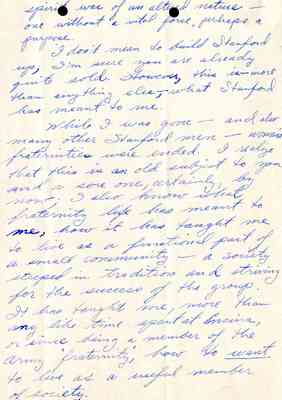 spirit was of an altered nature —
one without a vital force, perhaps a
purpose.
I don't mean to build Stanford
up, I'm sure you are already
quite sold. However, this is more
than anything else, what Stanford
has meant to me.
While I was gone — and also
many other Stanford men — 
fraternities were ended. I realize
that this is an old subject to you
and a sore one, certainly, by
now, I also know what
fraternity life has meant to
me, how it has taught me
to live as a functional part of
a small community — a society
steeped in tradition and striving
for the success of the group.
It has taught me, more than
any like time spent at Encina,
or since being a member of the
Army 'fraternity', how to want
to live as a useful member
of society.